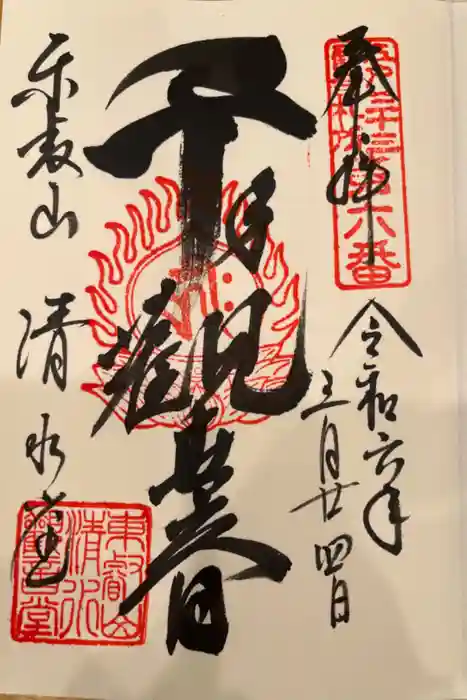 奉拝
第六番
令和六年
三月廿四日
千手觀世音
東叡山 清水堂
東叡山
清水
觀音堂